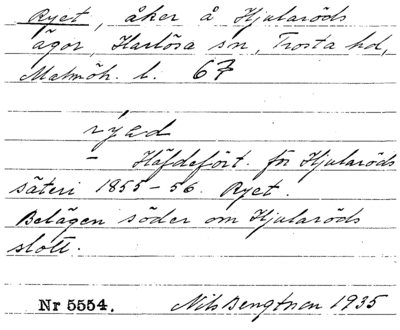 Ryet, åker å Hjularöds
ägor, Harlösa sn, Frosta hd,
Malmöh. l. 67
rýad
– Häfdefört. för Hjularöds
säteri 1855–56. Ryet.
Belägen söder om Hjularöds
slott.
Nr 5554. Nils Bengtson 1935